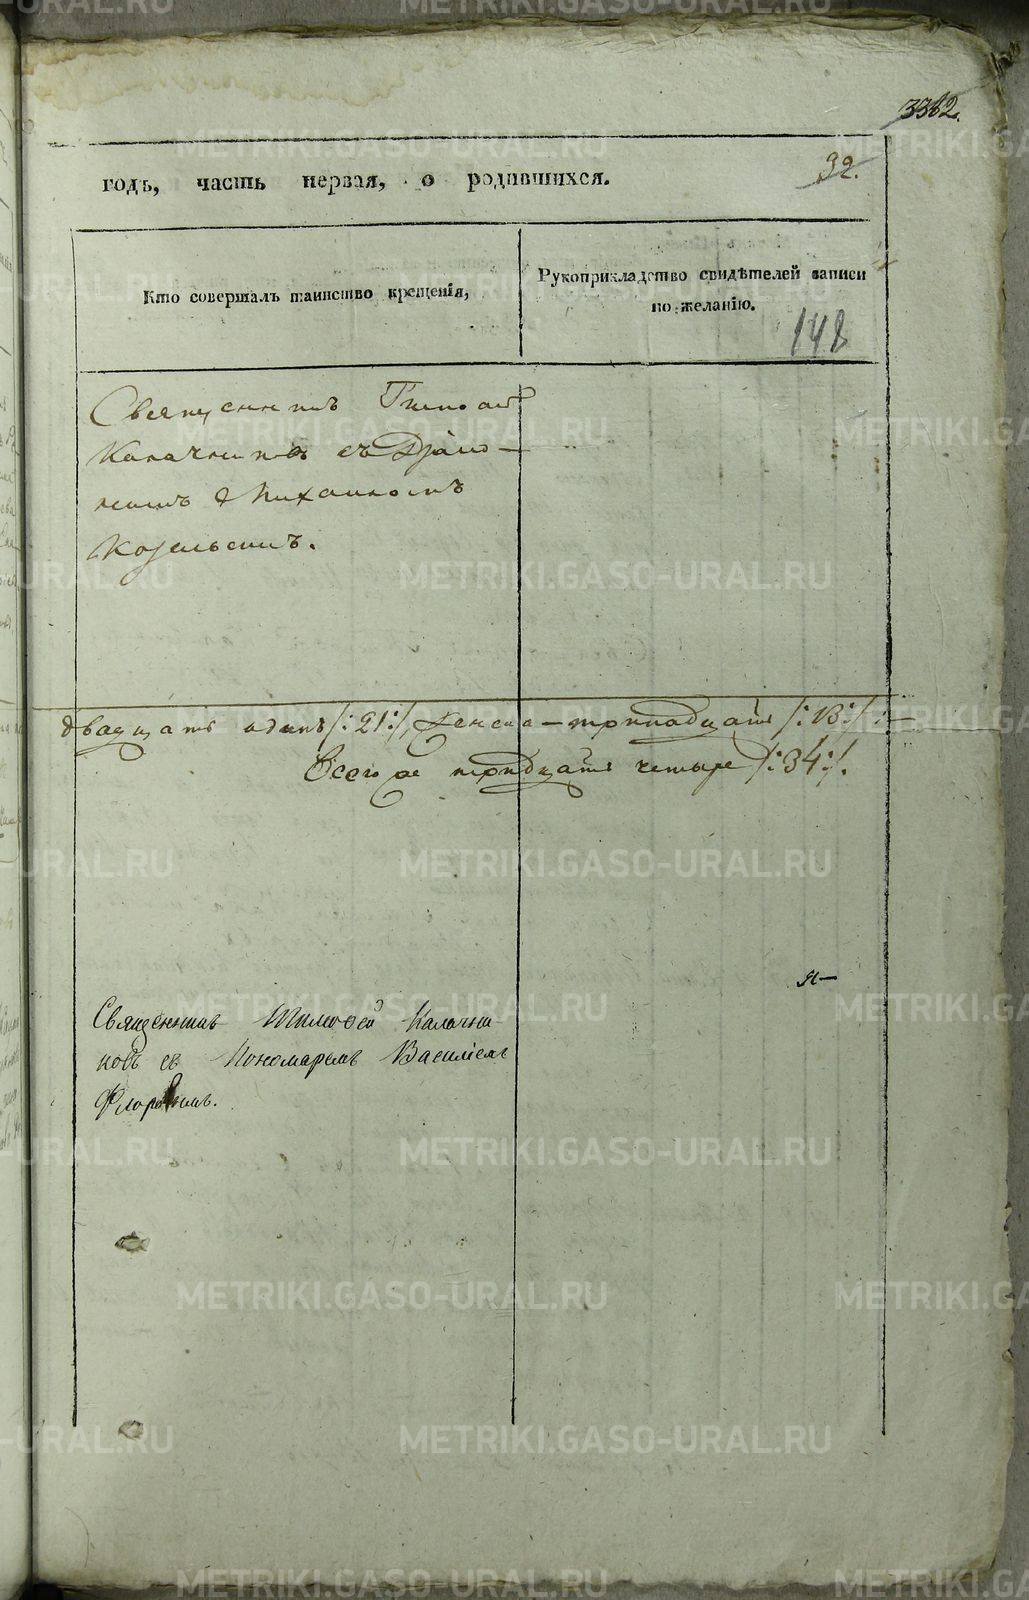 3382.
годъ, часть первая, о родившихся.
32.
Кто совершалъ таинство крещенія,
Рукоприкладство свидѣтелей записи
по желанію.
148
Священникъ Тимофей
Калачниковъ съ Діако-
номъ Михаиломъ
Козельскимъ.
двадцать одинъ /:21:/, женска – тринадцать /:13:/ :–
Всего же тридцать четыре /:34:/.
Священникъ Тимофей Калачни-
ковъ съ Пономаремъ Василіемъ
METRIKI.GASO-URAL.RU